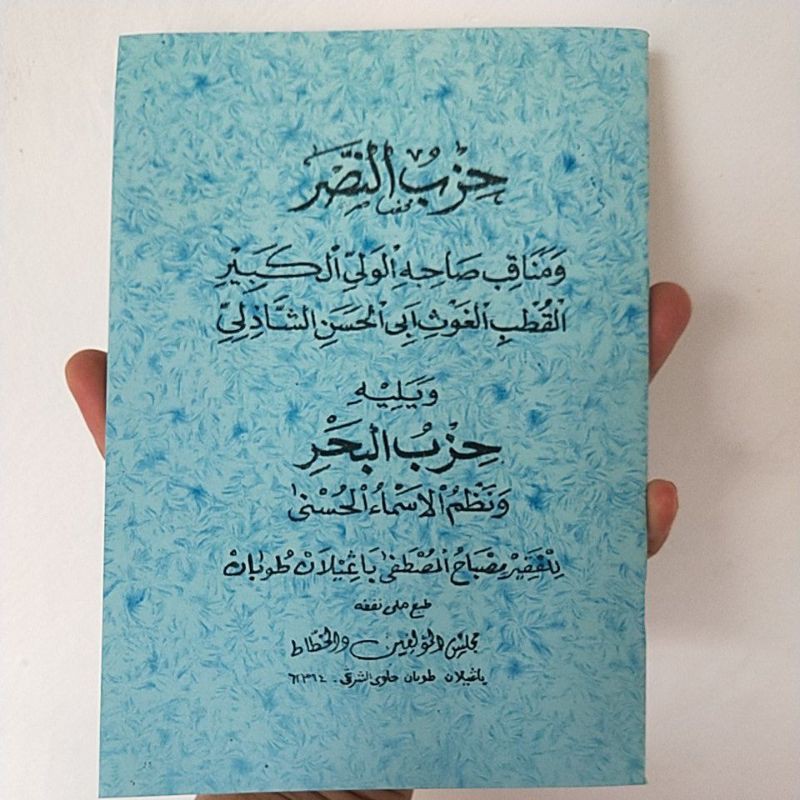 حِزْبُ النَّصْرِ
وَمَنَاقِبُ صَاحِبِهِ الْوَلِيِّ الْكَبِيْرِ
الْقُطْبِ الْغَوْثِ اَبِى الْحَسَنِ الشَّاذِلِيّ
وَيَلِيْهِ
حِزْبُ الْبَحْرِ
وَنَظْمُ الْاَسْمَاءُ الْحُسْنٰى
لِلْفَقِيْرِ مِصْبَاحُ الْمُصْطَفٰى بَاڠِيْلَانْ طُوبَانْ
طبع على نفقه
مجلس المؤلفين والخطاط
باڠيلان طوبان جاوى الشرقى - ٦٢٣٦٤